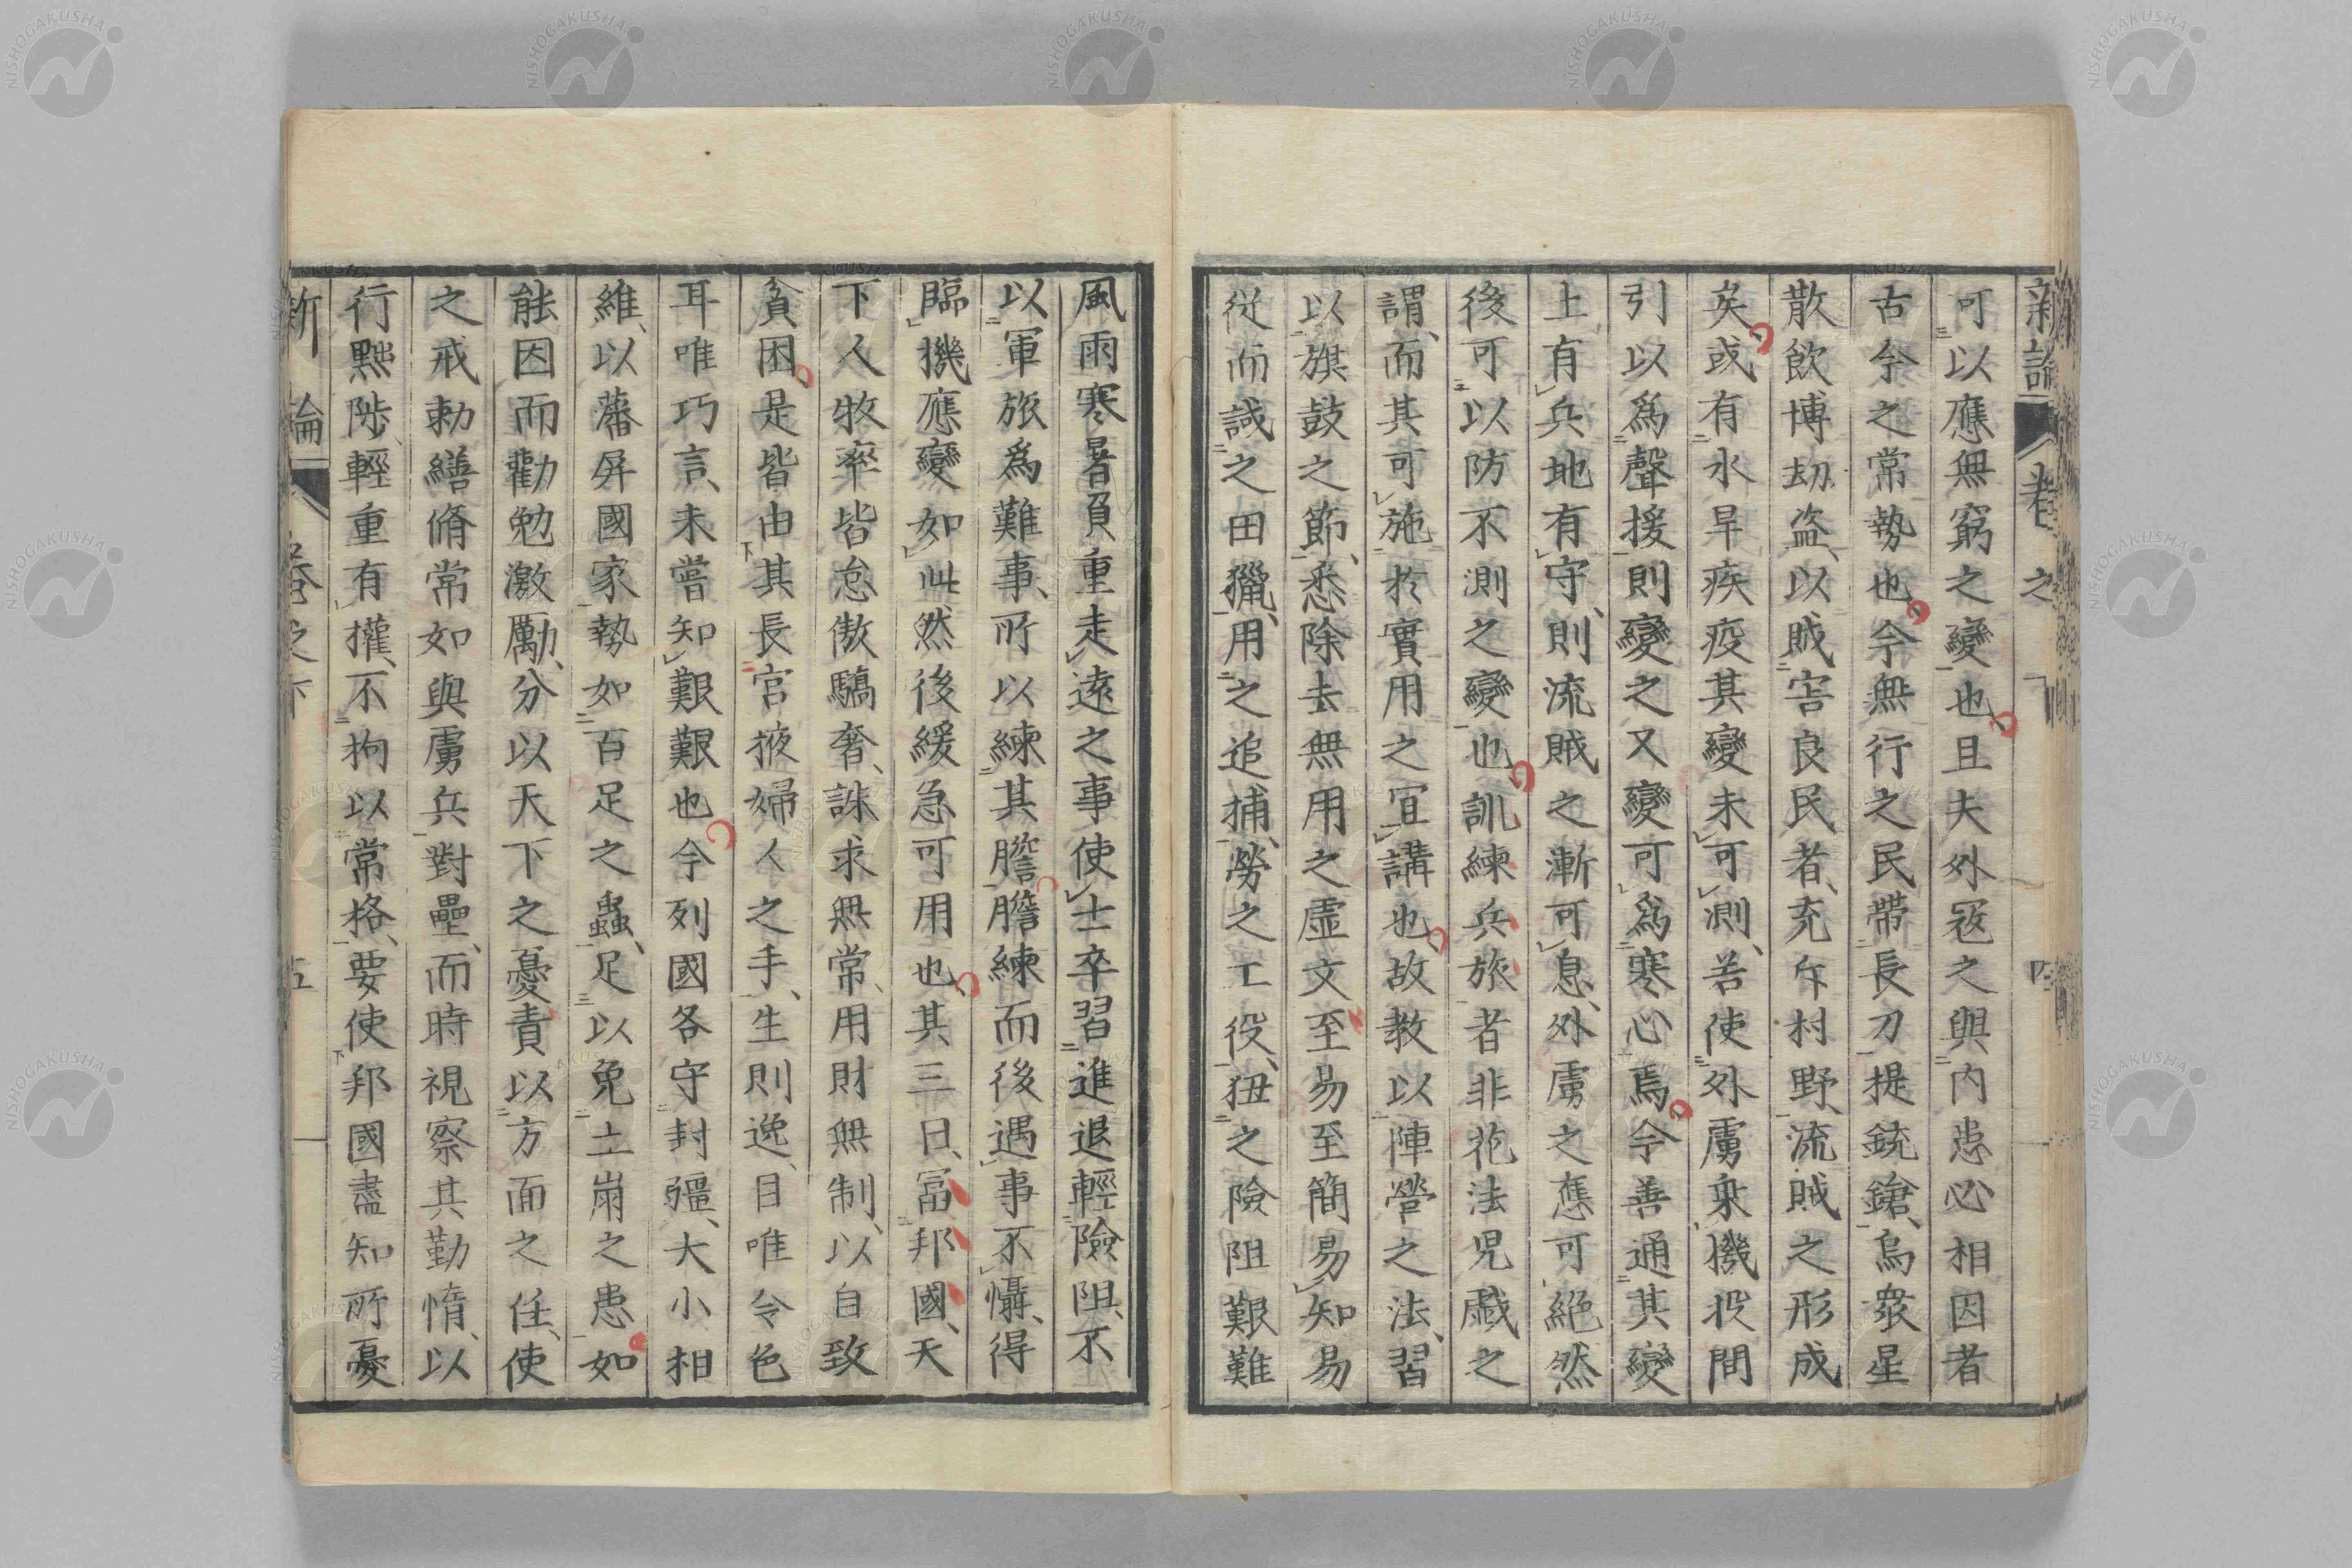 新論 卷之下 四
可以應無窮之變也且夫外寇之與內患必相因者
古今之常勢也今無行之民帶長刀提銃鎗烏衆星
散飲博劫盜以賊害良民者充斥村野流賊之形成
矣或有水旱疾疫其變未可測若使外虜乘機投間
引以爲聲援則變之又變可爲寒心焉今善通其變
上有兵地有守則流賊之漸可息外虜之應可絶然
後可以防不測之變也訓練兵旅者非花法兒戲之
謂而其可施於實用之宜講也故教以陣營之法習
以旗鼓之節悉除去無用之虛文至易至簡易知易
從而誡之田獵用之追捕勞之工役狃之險阻艱難
風雨寒暑負重走遠之事使士卒習進退輕險阻不
以軍旅爲難事所以練其膽膽練而後遇事不懾得
臨機應變如此然後緩急可用也其三曰富邦國天
下人牧率皆怠傲驕奢誅求無常用財無制以自致
貧困是皆由其長宮掖婦人之手生則逸目唯令色
耳唯巧言未嘗知艱艱也今列國各守封疆大小相
維以藩屏國家勢如百足之蟲足以免土崩之患如
能因而勸勉激勵分以天下之憂責以方面之任使
之戒勅繕脩常如與虜兵對壘而時視察其勤惰以
行黜陟輕重有權不拘以常格要使邦國盡知所憂
新論 卷之下 五
NISHOGAKUSHA